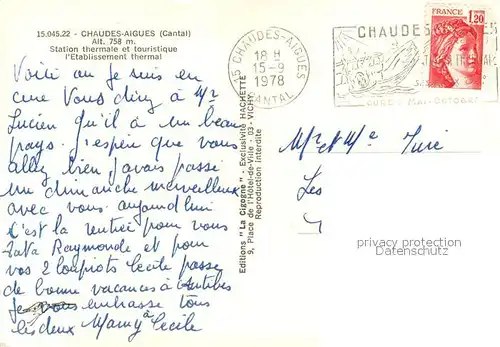 15.045.22 - CHAUDES-AIGUES (Cantal)
Alt. 758 m.
Station thermale et touristique
l'Etablissement thermal
Voilà ou je suis en
cure Vous direz à Mr
Lucien qu'il a un beau
pays. j'espère que vous
allez bien j'avais passé
un dimanche merveilleux
avec vous aujourd'hui
C'est la rentrée pour vous
Tata Raymonde et pour
vos 2 loupiots Cecile passe
de bonne vacances à Antibes
Je vous embrasse tous
les deux Mamy à Cecile
Editions "La Cigogne" - Exclusivité HACHETTE
9, Place de l'Hôtel-de-Ville - 03-VICHY
Reproduction interdite
15 CHAUDES-AIGUES
18 H
15-9
1978
CANTAL
CHAUDES
CURE: MAI-OCTOBRE
FRANCE
1,20
Mr et Me
Les
privacy protection
Datenschutz